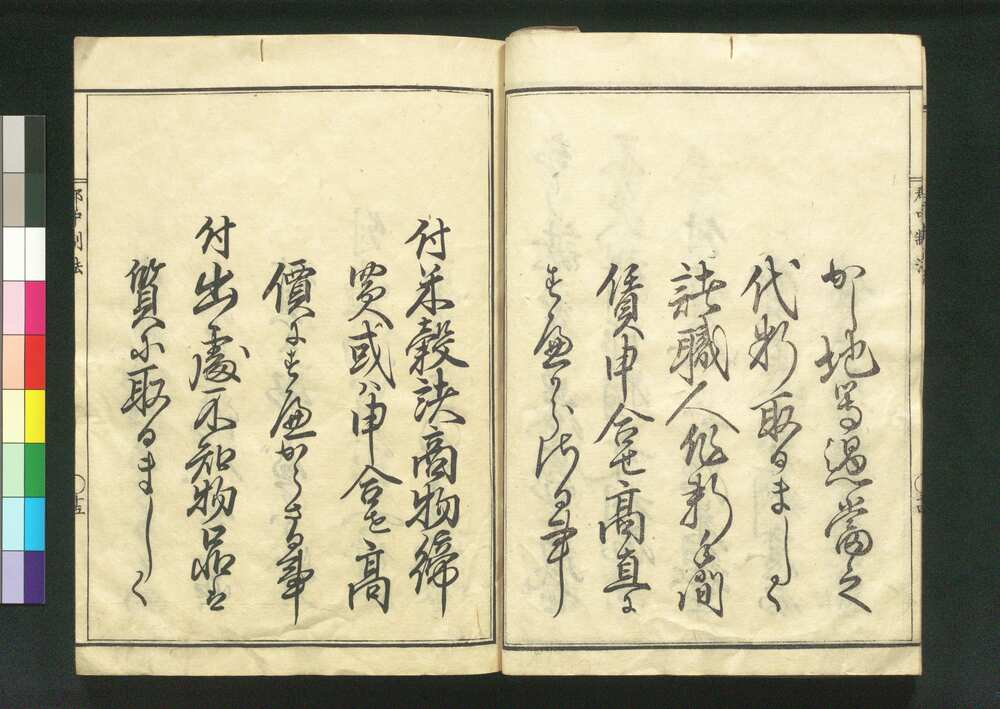 郡中制法
十四
かし地等過當之
代料取るましく
諸職人作料手間
賃申合セ高直に
すへからさる事
付米穀諸商物締
買或ハ申合セ高
價にすへからさる事
付出處不知物品を
質に取るましく
郡中制法
十五